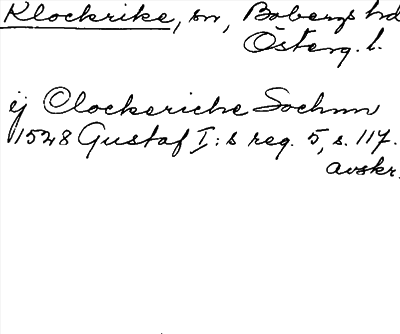 Klockrike, sn, Bobergs hd
Österg. l.
ij Clockeriche Sochnn
1528 Gustaf I:s reg. 5, s. 117.
avskr.